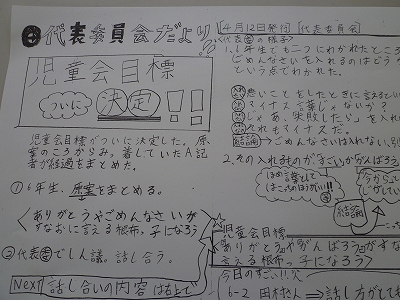 代表委員会だより
4月12日発行
代表委員会
児童会目標
ついに
決定!!
児童会目標がついに決定した。原
案のころからみ。着していたA記
者が経過をまとめた。
①6年生、原案をまとめる。
〈ありがとうやごめんなさいが
すなおに言える根布っ子になろう
②代表委でしん議。話し合う。
Next 話し合いの内容は右上で
1.6年生でも二つにわかれたところ
ごめんなさいを入れるのはどうか
という点でわかれた。
悪いことをしたときに言えるとい
マイナス言葉じゃないか?
「じゃあ、失敗したら」を入れ
それもマイナスだ。
ごめんなさいは入れない。別
2.その入れるものが“すごい”か“がんばろう”
はめ言葉として
はこっちのほうがいい!!
今から
結論
児童会目標
ありがとうやがんばろうがすな
言える根布っ子になろう〉
今日のすごい!!
6-2
話し方がとても